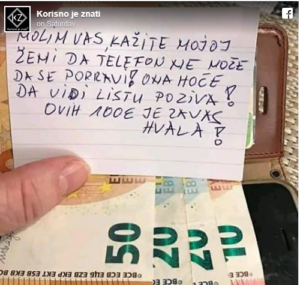 Korisno je znati
on Saturday
KZ
MOLIM VAS, KAŽITE MOJOJ
ŽENI DA TELEFON NE MOŽE
DA SE POPRAVI! ONA HOĆE
DA VIDI LISTU POZIVA!
OVIH 100€ JE ZA VAS
HVALA!
50
20
20
10